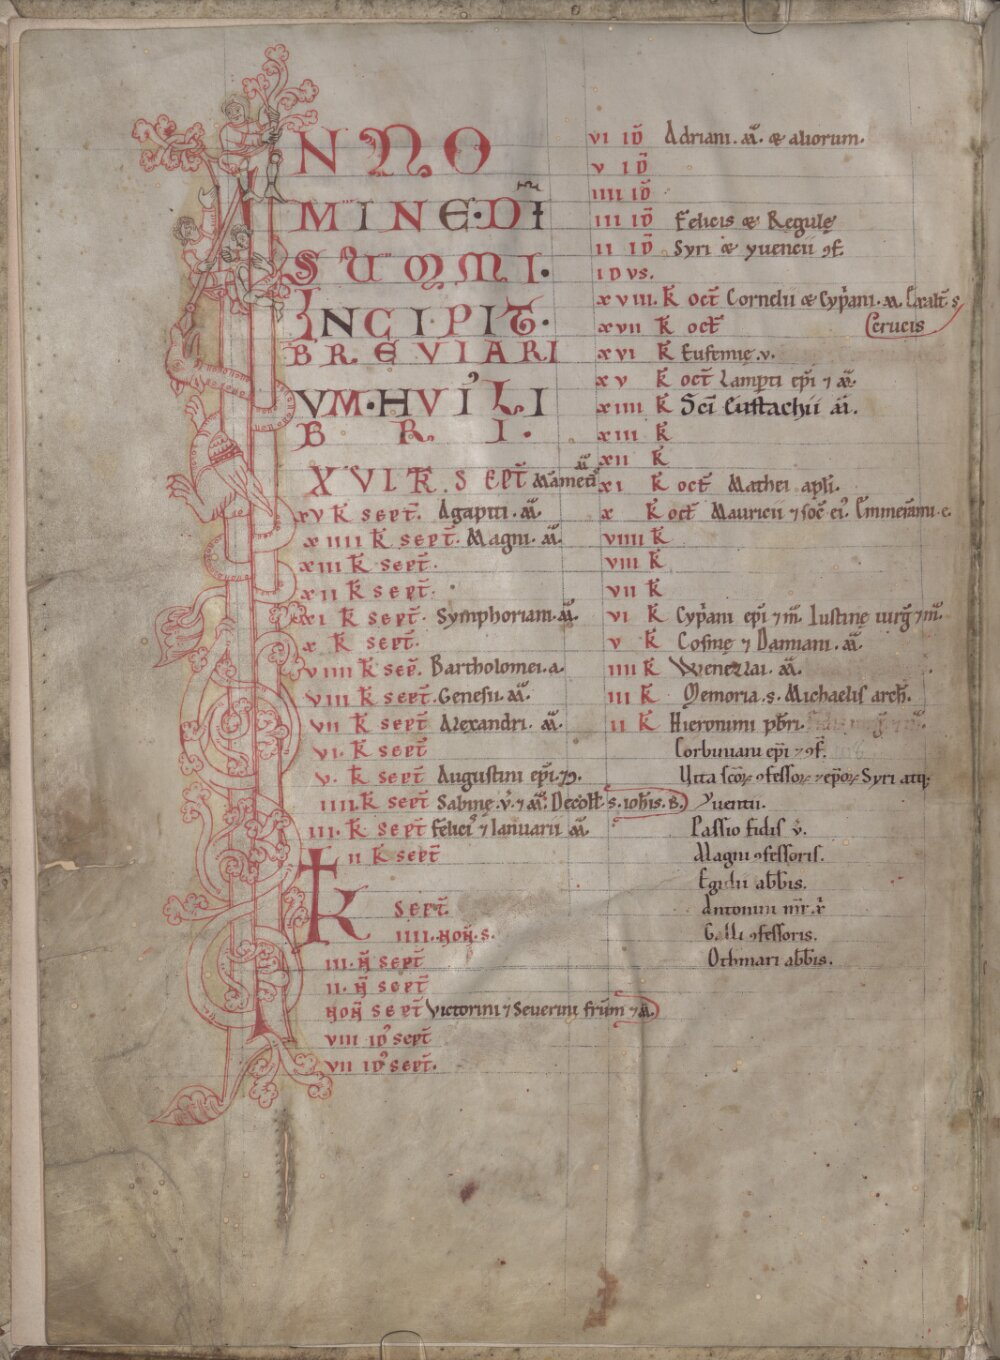 INNO
MINE·DI
SUMMI·
INCIPIT·
BREVIARI
VM·HVI' LI
BRI·
XVI K SEPT Mametis M
xv K sept. Agapiti. M.
xiiii K sept. Magni. M.
xiii K sept.
xii K sept.
xi K sept. Symphoriani. M.
x K sept.
viiii K sept. Bartholomei. a.
viii K sept. Genesii. M.
vii K sept Alexandri. M.
vi. K sept
v. K sept Augustini epi. 7 9.
iiii. K sept Sabinę. v. 7 M. Decoll s. iohis. B.
iii. K sept felici' 7 Ianuarii M.
ii K sept
K sept.
iiii. non. s.
iii. N sept
ii. N sept
non sept Victorini 7 Severini frum 7 M.
viii id' sept
vii id' sept.
vi ID Adriani. M. & aliorum.
v ID
iiii ID
iii ID Felicis & Regulę
ii ID Syri & yuencii 9f.
idvs.
xviii. K oct Cornelii & Cypani. M. Exalt s.
crucis
xvii K oct
xvi K Eufemię. v.
xv K oct Lampti epi 7 M.
xiiii K Sci Eustachii M.
xiii K
xii K
xi K oct Mathei apli.
x K oct Mauricii 7 soc ei'. Emmerāmi. e.
viiii K
viii K
vii K
vi K Cypani epi 7 m. Iustinę uirg 7 m.
v K Cosmę 7 Damiani. M.
iiii K Wenezlai. M.
iii K Memoria. s. Michaelis arch.
ii K Hieronimi pbri.
Corbiniani epi 7 9f.
Vita scor 9fessor 7 epor Syri atq;
Yuentii.
Passio fidis v.
Magni 9fessoris.
Egidii abbis.
Antonini mr.
Galli 9fessoris.
Othmari abbis.